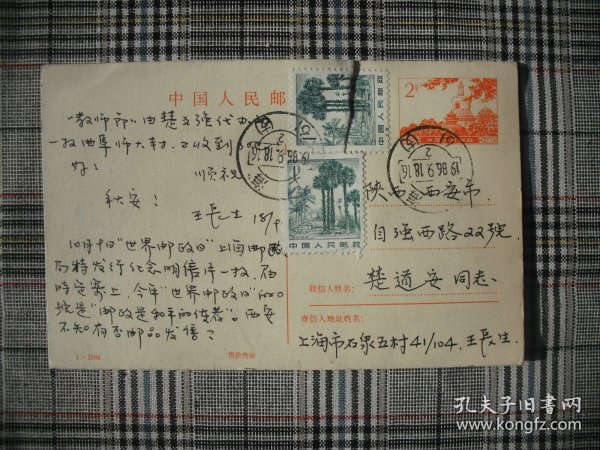 中国人民邮
"教师节"由楚文强代办的
一枚曲阜师大封, 已收到
好!
顺祝:
秋安!
王长生 18/9
10月9日"世界邮政日"上海邮政
局特发行纪念明信片一枚, 届
时定寄上, 今年"世界邮政日"的口
号是"邮政是和平的使者"。西安
不知有否邮品发售?
1-1984
售价叁分
中国人民邮政
中国人民邮政
2分
上海
1986.9.18.16
上海
1986.9.18.16
陕西 西安市
自强西路22號
收信人姓名:
楚道安 同志
寄信人地址姓名:
上海市石泉五村41/104. 王長生.
孔夫子旧书网
www.kongfz.com